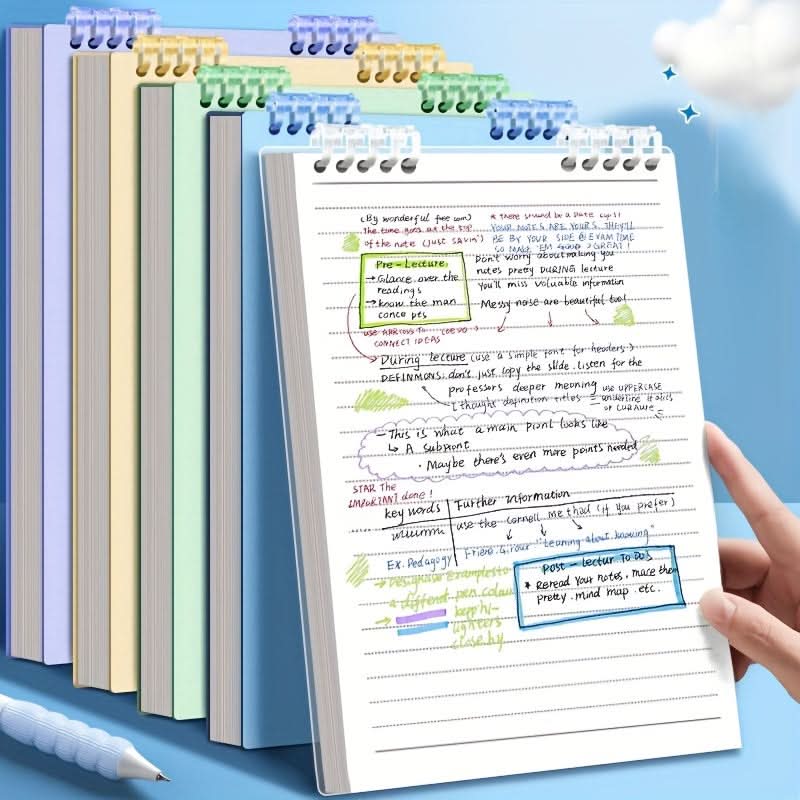 (By wonderful free com)
The time goes at the top
of the note (just savin')
* There should be a date
YOUR NOTES ARE YOURS. THEY'LL
BE BY YOUR SIDE @ EXAM TIME
SO MAKE 'EM GOOD GREAT!
Pre-Lecture,
→ Glance over the
readings
→ know the man
conce pts
Don't worry about making you
notes pretty DURING lecture
You'll miss valuable information
Messy nose are beautiful too!
USE ARROWS TO
CONNECT IDEAS
During lecture (use a simple font for headers.)
DEFINMONS: don't just copy the slide. listen for the
professors deeper meaning
use UPPERCASE
[ thought definition titles
underline italics
or
- This is what a main point looks like
↳ A subpoint
· Maybe there's even more points needed
STAR The
IMPORTANT done!
key words
Further information
use the cornell me thod (if you prefer)
Ex. Pedagogy
"Learning about knowing"
→ Designase examples to
a different pen colour
→ keep hi-
lighters
close by
Post - lectur To Do's
* Reread your notes, mace them
pretty. mind map. etc.